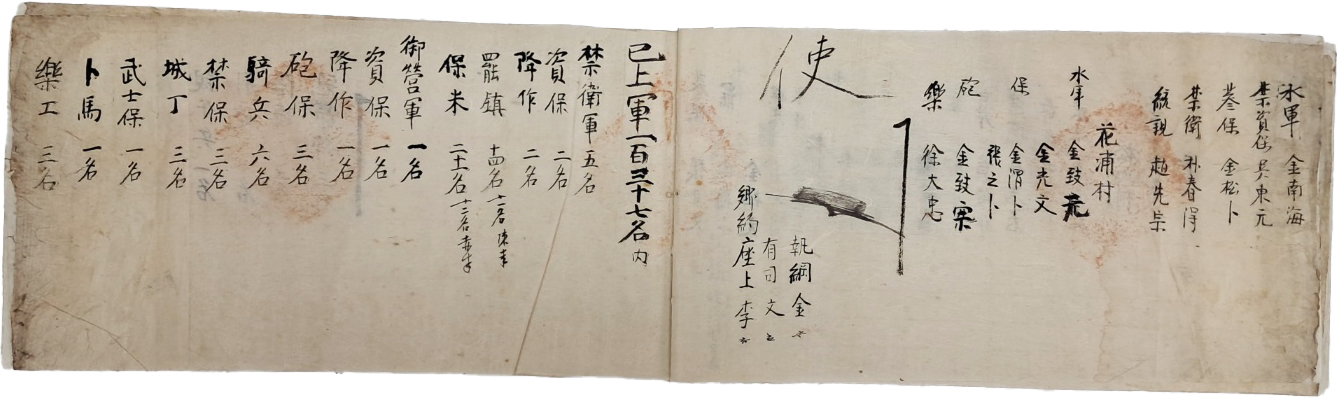 水軍 金南海
禁資保 吳東元
養保 金松卜
禁衛 朴春得
統親 趙先宗
花浦村
水軍 金致元
金光文
保 金渭卜
張之卜
砲 金致宗
樂 徐大忠
使
執綱 金
有司 文
鄉約座上 李
已上軍一百三十七名 內
禁衛軍 五名
資保 二名
降作 二名
罷鎮 十四名
保米 二十名
御營軍 一名
資保 一名
降作 一名
砲保 三名
騎兵 六名
禁保 三名
城丁 三名
武士保 一名
卜馬 一名
樂工 三名